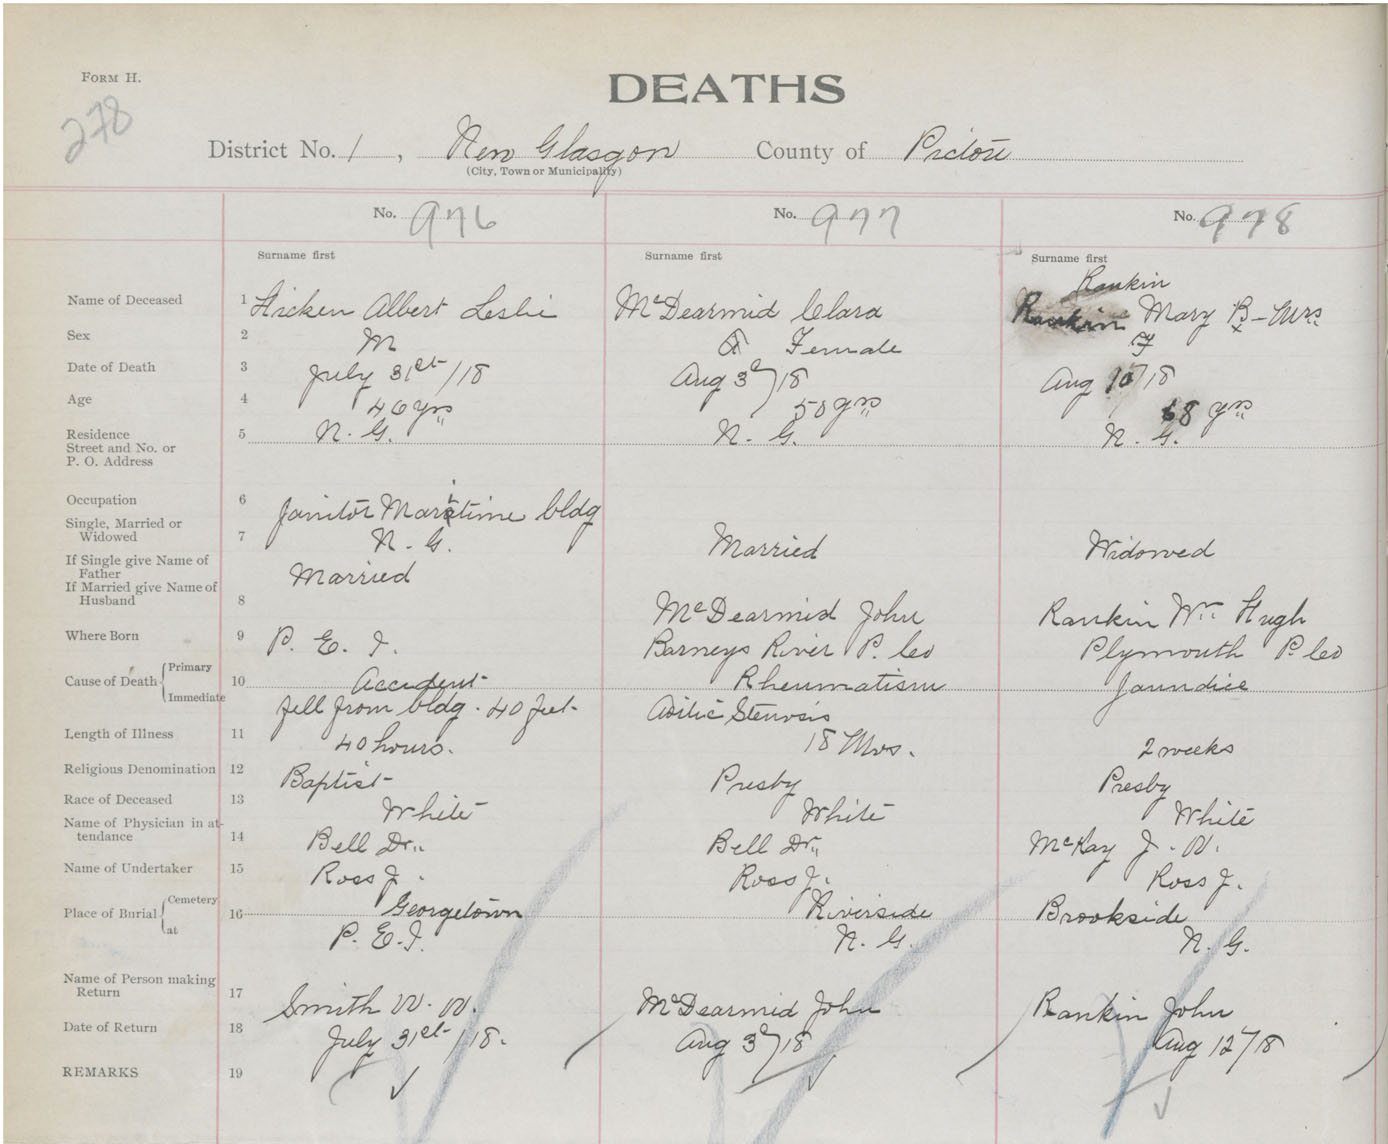 FORM H.
DEATHS
278
District No. 1, New Glasgow County of Pictou
(City, Town or Municipality)
No. 976 No. 977 No. 978
Surname first Surname first Surname first
Rankin
Name of Deceased 1 Hicken Albert Leslie McDearmid Clara Rankin Mary B - Mrs.
Sex 2 M F Female F
Date of Death 3 July 31st/18 Aug 3d/18 Aug 10/18
Age 4 46 yrs 50 yrs 68 yrs
Residence 5 N. G. N. G. N. G.
Street and No. or
P. O. Address
Occupation 6 Janitor Maritime bldg
Single, Married or
Widowed 7 N. G. Married Widowed
If Single give Name of
Father Married
If Married give Name of
Husband 8 McDearmid John Rankin Wm. Hugh
Where Born 9 P. E. I. Barneys River P. Co Plymouth P. Co
Cause of Death Primary 10 Accident Rheumatism Jaundice
Immediate fell from bldg. 40 feet Aortic Stenosis
Length of Illness 11 40 hours. 18 Mos. 2 weeks
Religious Denomination 12 Baptist Presby Presby
Race of Deceased 13 White White White
Name of Physician in at-
tendance 14 Bell Dr. Bell Dr. McKay J. W.
Name of Undertaker 15 Ross J. Ross J. Ross J.
Place of Burial Cemetery 16 Georgetown Riverside Brookside
at P. E. I. N. G. N. G.
Name of Person making
Return 17 Smith W. W. McDearmid John Rankin John
Date of Return 18 July 31st/18. Aug 3d/18 Aug 12/18
REMARKS 19